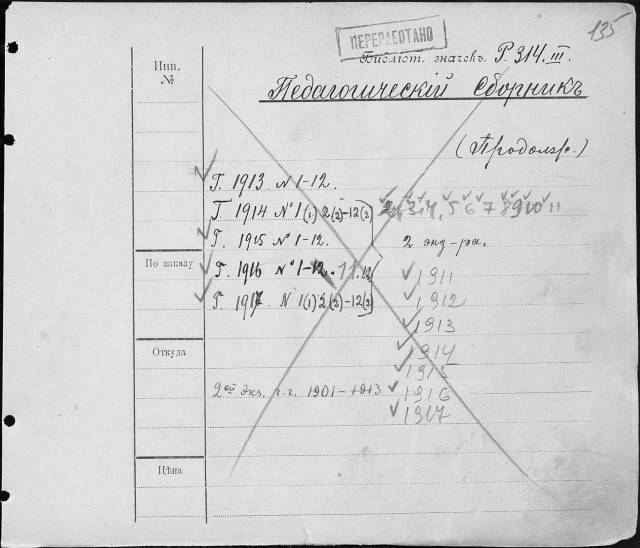 135
ПЕРЕРАБОТАНО
Библіот. значекъ. Р. 314. III.
Инв.
№
Педагогическій Сборникъ
(Продолж.)
Г. 1913. № 1-12.
Г. 1914 № 1(1) 2(2)-12(2) 2, 3, 4, 5 6 7 8 9 10 11
Г. 1915 № 1-12. 2 экз-ра.
По заказу
Г. 1916 № 1-12. 11. 12
1911
Г. 1917 № 1(1) 2(2)-12(2)
1912
1913
Откуда
1914
1915
2ой экз. г.г. 1901-1913 1916
1917
Цѣна